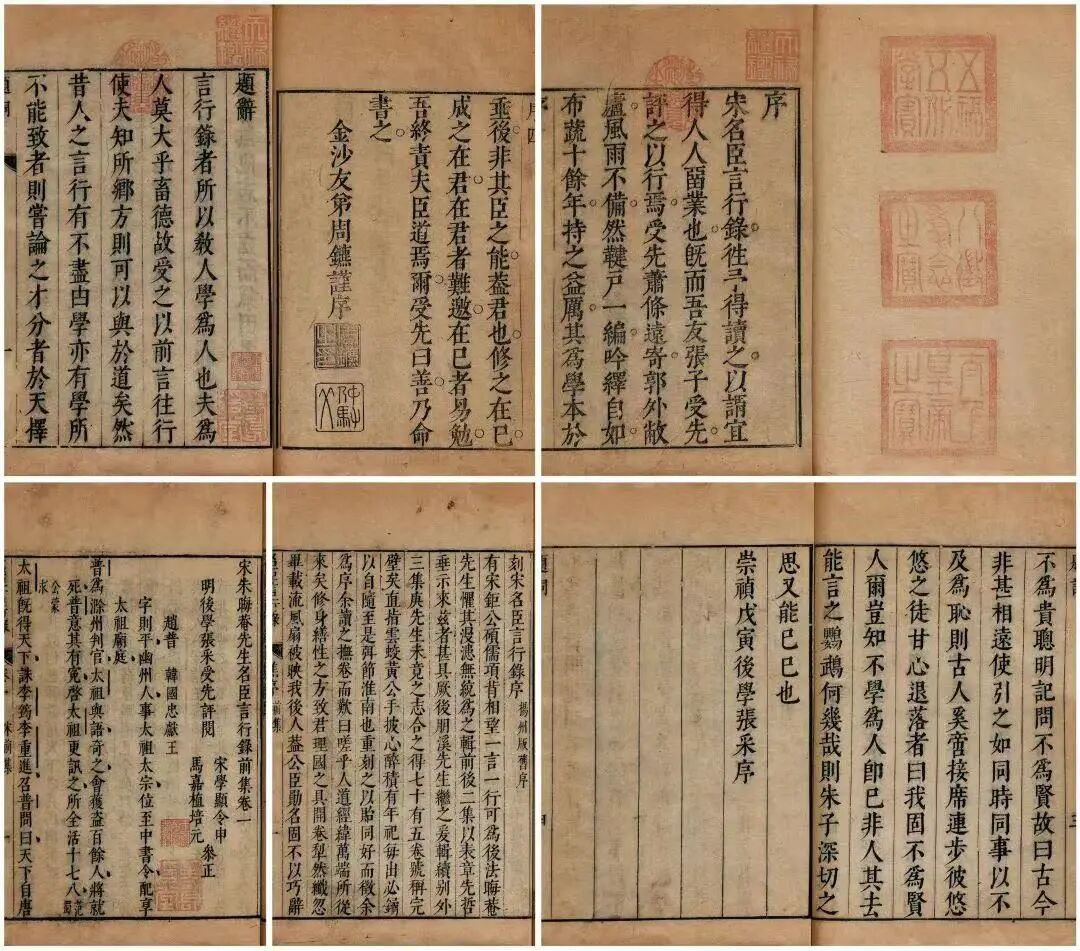 五福五代堂寶
八徵耄念之寶
太上皇帝之寶
天祿繼鑑
序
宋名臣言行錄徃徃得讀之以謂宜
得人人畱業也旣而吾友張子受先
評之以行焉受先蕭條遠寄郭外敝
廬風雨不備然鍵戸一編吟繹自如
布蔬十餘年持之益厲其爲學本於
序四
埀後非其臣之能葢君也修之在已
成之在君在君者難邀在已者易勉
吾終責夫臣道焉爾受先曰善乃命
書之
金沙友弟周鑣謹序
仲馭父
天祿繼鑑
題辭
言行錄者所以敎人學爲人也夫爲
人莫大乎畜德故受之以前言徃行
使夫知所鄉方則可以與於道矣然
昔人之言行有不盡由學亦有學所
不能致者則嘗論之才分者於天擇
題詞
一
不爲貴聰明記問不爲賢故曰古今
非甚相遠使引之如同時同事以不
及爲恥則古人奚啻接席連步彼悠
悠之徒甘心退落者曰我固不爲賢
人爾豈知不學爲人卽已非人其去
能言之鸚鵡何幾哉則朱子深切之
思又能已已也
崇禎戊寅後學張采序
題詞
四
刻宋名臣言行錄序 揚州版舊序
有宋鉅公碩儒項背相望一言一行可爲後法晦菴
先生懼其漫漶無統爲之輯前後二集以表章先哲
垂示來兹者甚具厥後朋溪先生繼之爰輯續别外
三集庚先生未竟之志合之得七十有五卷號稱完
壁矣直指雲蛟黃公手披心醉積有年祀每出必鐫
以自隨至是弭節淮南也重刻之以貽同好而徵余
爲序余讀之撫卷而歎曰嗟乎人道經緯萬端所從
來矣修身繕性之方致君理國之具開卷犁然纖忽
畢載流風扇被映我後人葢公臣勛名固不以巧辭
宋朱晦菴先生名臣言行錄前集卷一
明後學張采受先評閱
宋學顯令申
馬嘉植培元
叅正
趙普 韓國忠獻王
字則平幽州人事太祖太宗位至中書令配享
太祖廟庭
普爲滁州判官太祖與語奇之會獲盗百餘人將就
死普意其有寃啓太祖更訊之所全活十七八
太祖旣得天下誅李筠李重進召普問曰天下自唐